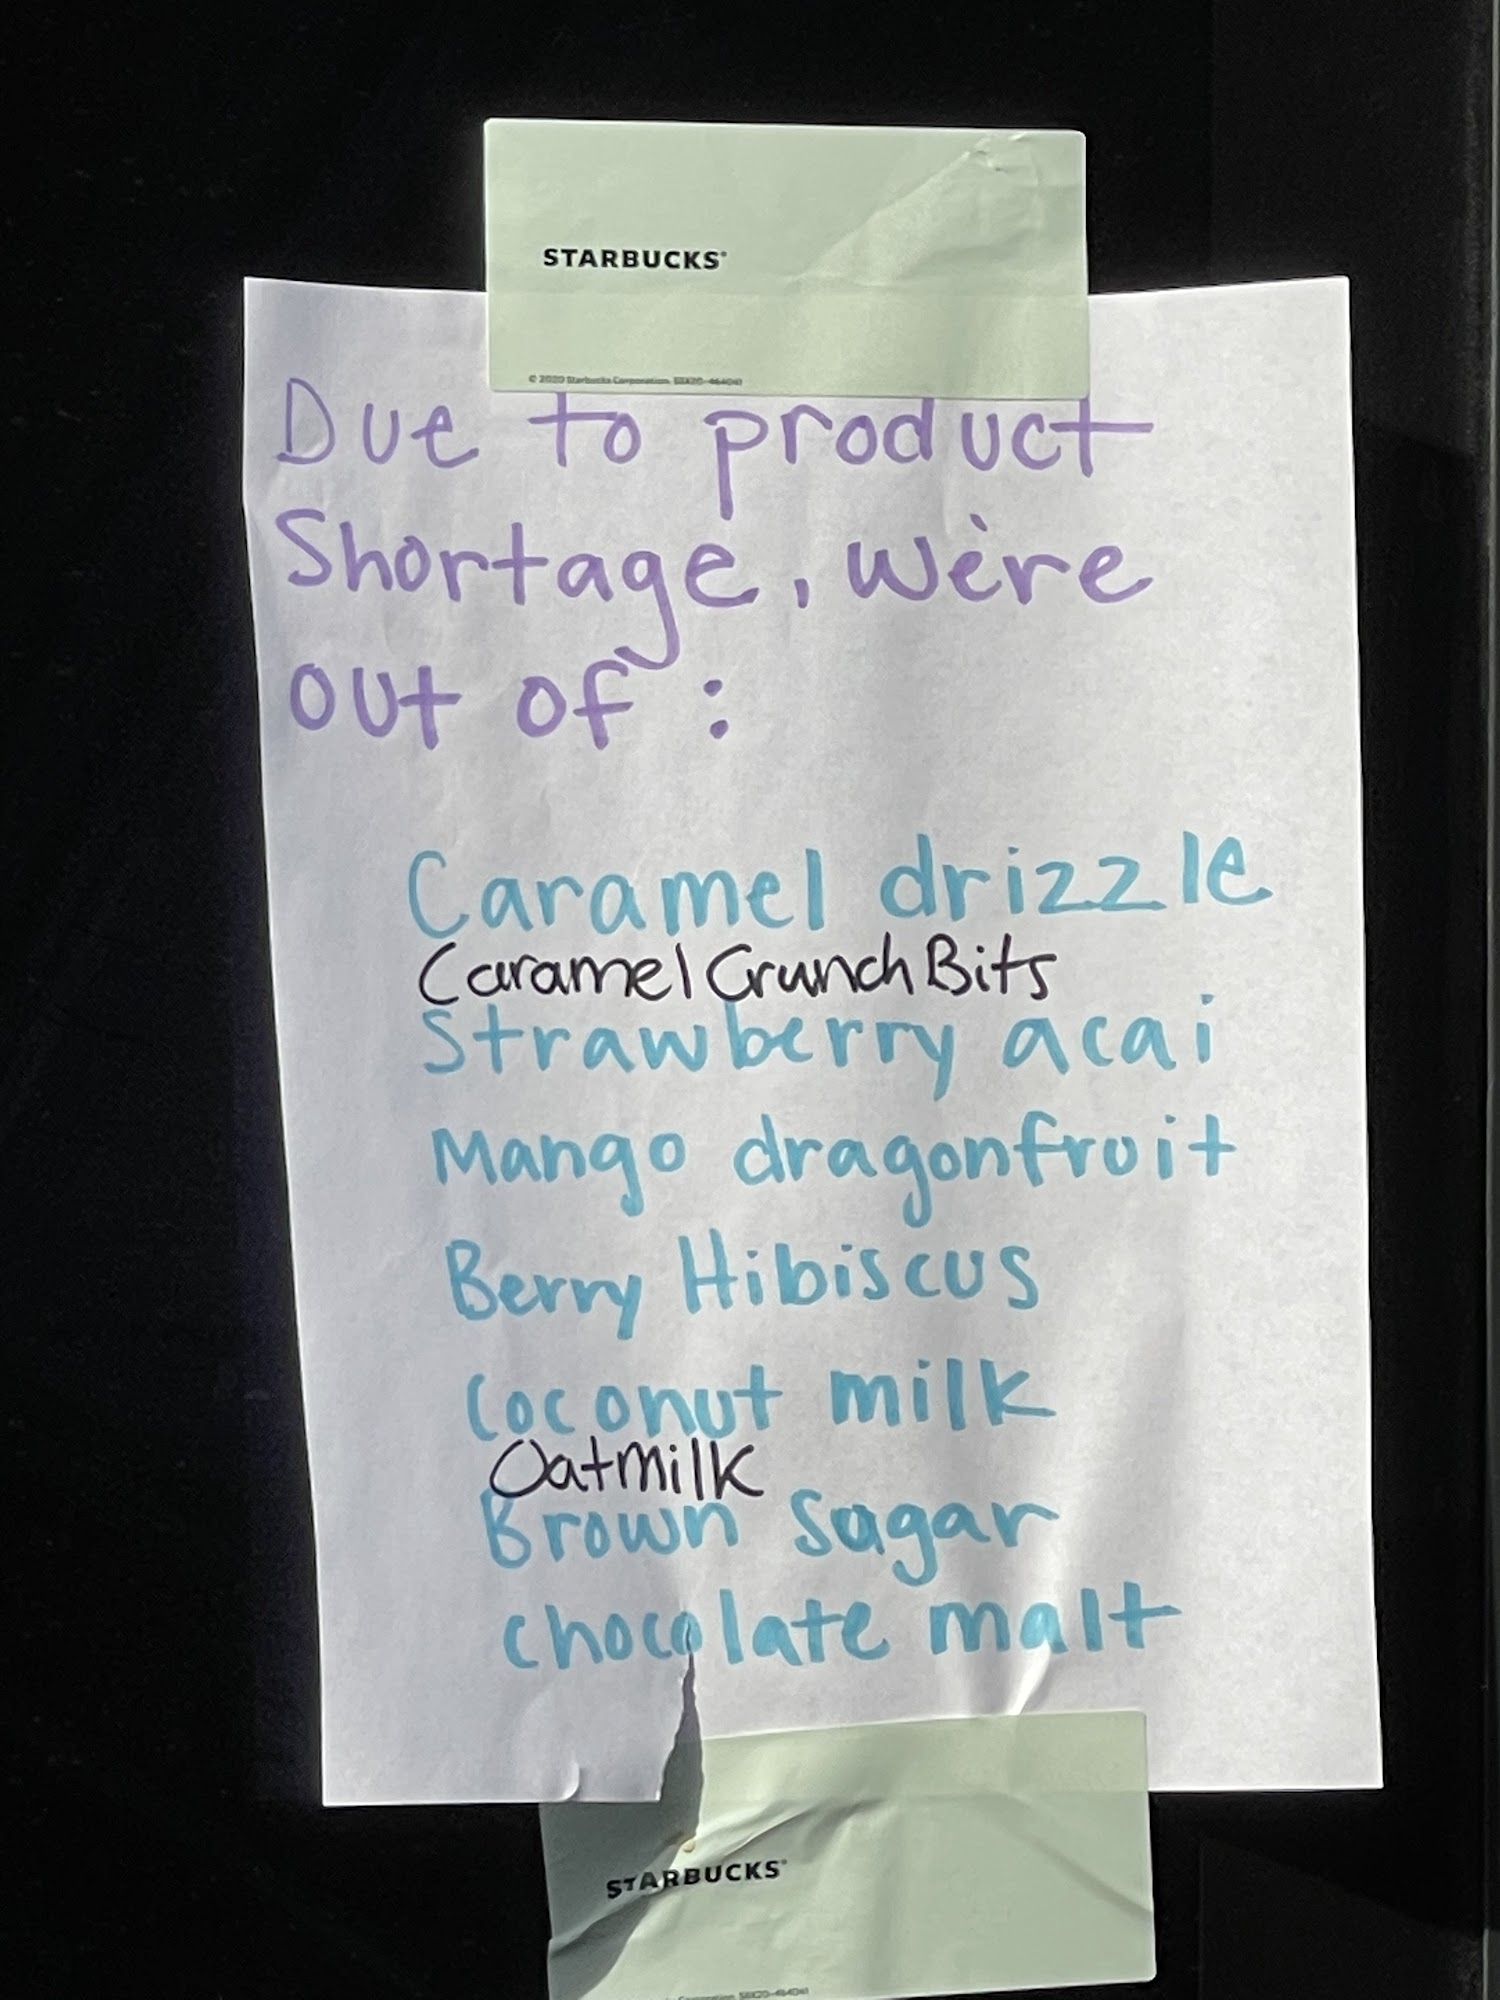 STARBUCKS®
© 2020 Starbucks Corporation. SBX20-464041
Due to product
Shortage, we're
out of :
Caramel drizzle
Caramel Crunch Bits
Strawberry acai
Mango dragonfruit
Berry Hibiscus
Coconut milk
Oatmilk
Brown sagar
chocolate malt
STARBUCKS®
Corporation. SBX20-464041